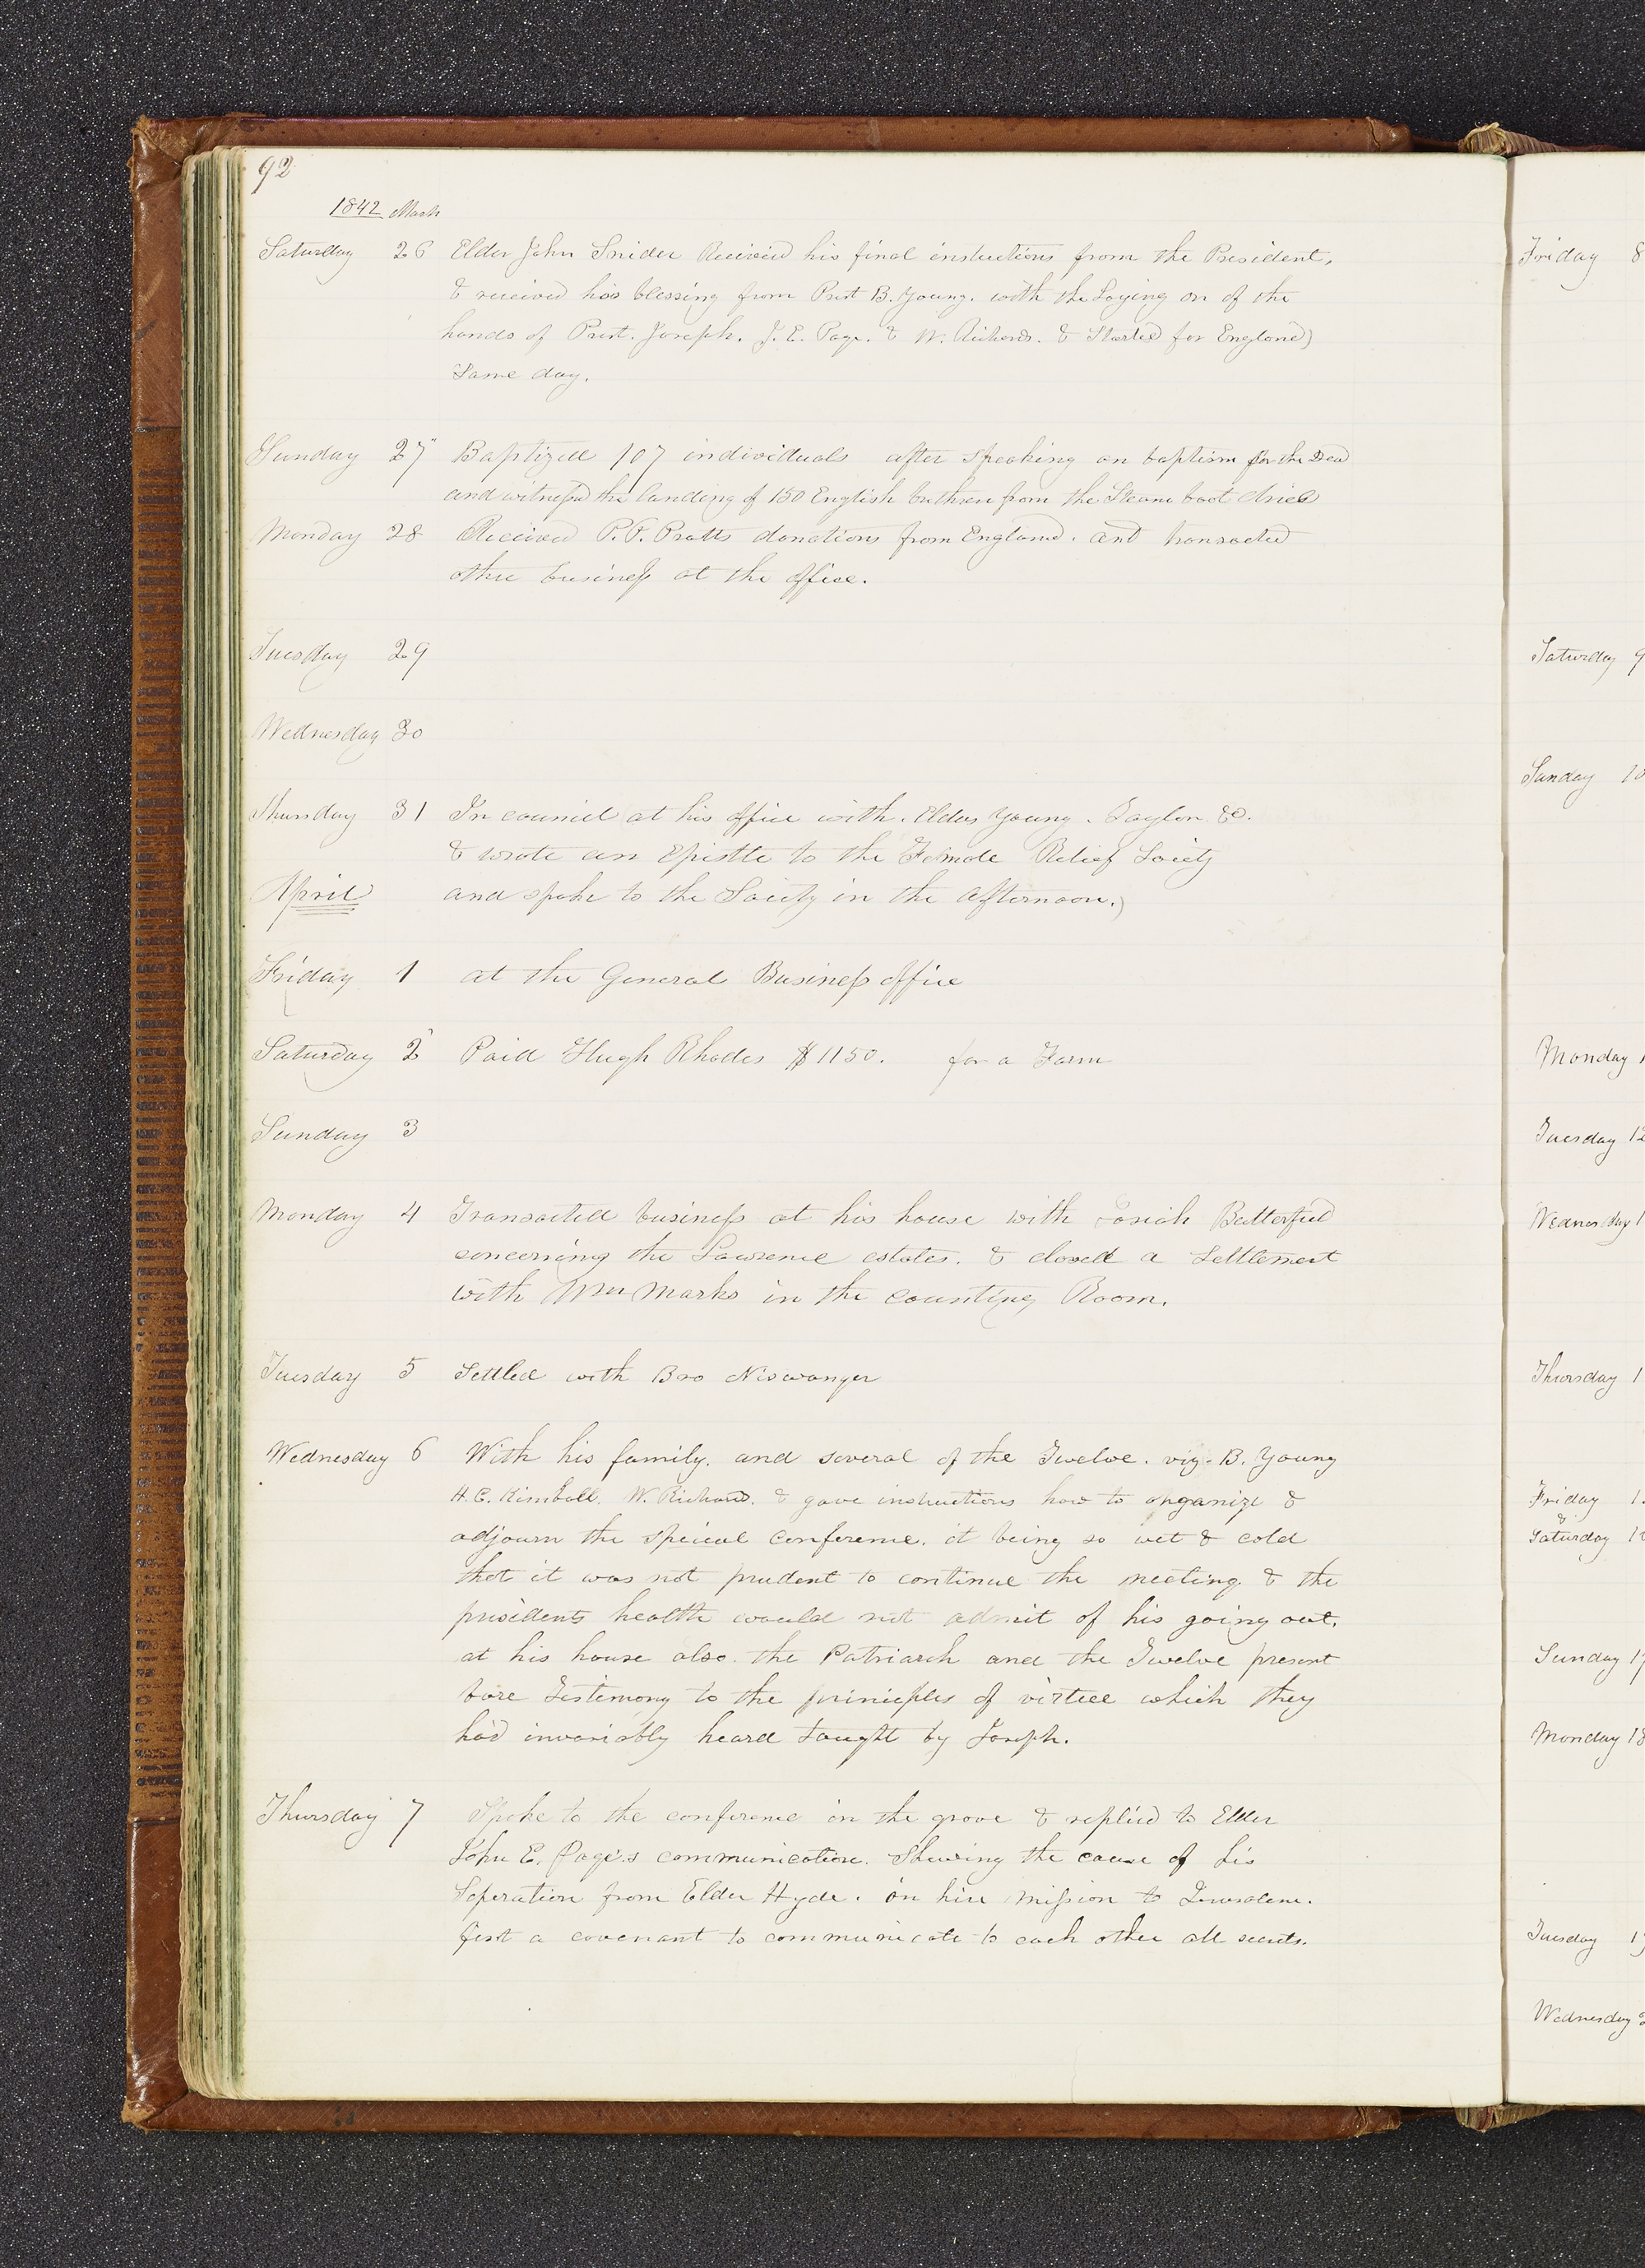 92
1842 March
Saturday 26 Elder John Snider Received his final instructions from the President,
& received his blessing from Prest B. Young. with the Laying on of the
hands of Prest. Joseph. J. E. Page. & W. Richards. & Started for England
Same day.
Sunday 27" Baptized 107 individuals after speaking on baptism for the Dead
and witnessed the landing of 150 English brethren from the Steam boat Ariel
Monday 28 Received P. P. Pratts donations from England. and transacted
other business at the office.
Tuesday 29
Wednesday 30
Thursday 31 In council at his office with. Elders Young. Taylor &c.
& wrote an Epistle to the Female Relief Society
April and spoke to the Society in the afternoon.
Friday 1 at the General Business office
Saturday 2 Paid Hugh Rhodes $1150. for a Farm
Sunday 3
Monday 4 Transacted business at his house with Josiah Butterfield
concerning the Lawrence estates. & closed a Settlement
with Wm Marks in the counting Room.
Tuesday 5 Settled with Bro Niswanger
Wednesday 6 With his family. and several of the Twelve. viz. B. Young
H. C. Kimball. W. Richards. & gave instructions how to organize &
adjourn the special conference. it being so wet & cold
that it was not prudent to continue the meeting. & the
presidents health would not admit of his going out.
at his house also. the Patriarch and the Twelve present
bore testimony to the principles of virtue which they
had invariably heard taught by Joseph.
Thursday 7 Spoke to the conference in the grove & replied to Elder
John E. Page's communication. Shewing the cause of his
Seperation from Elder Hyde. on his mission to Jerusalem.
first a covenant to communicate to each other all secrets.
Friday 8
Saturday 9
Sunday 10
Monday
Tuesday 12
Wednesday 1
Thursday 1
Friday 1
&
Saturday 1
Sunday 17
Monday 18
Tuesday 1
Wednesday 2